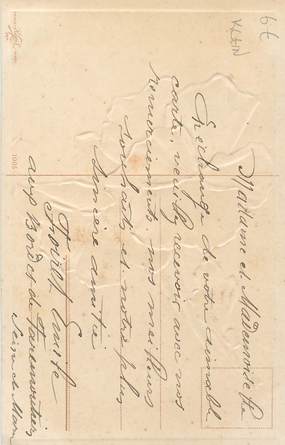 Madame et Mademoiselle
En échange de votre aimable
carte, veuillez recevoir avec nos
remerciements nos meilleurs
souhaits et notre plus
sincère amitié
Emile
aux Bordes de Faremoutiers
Seine et Marne
6€
KLEIN